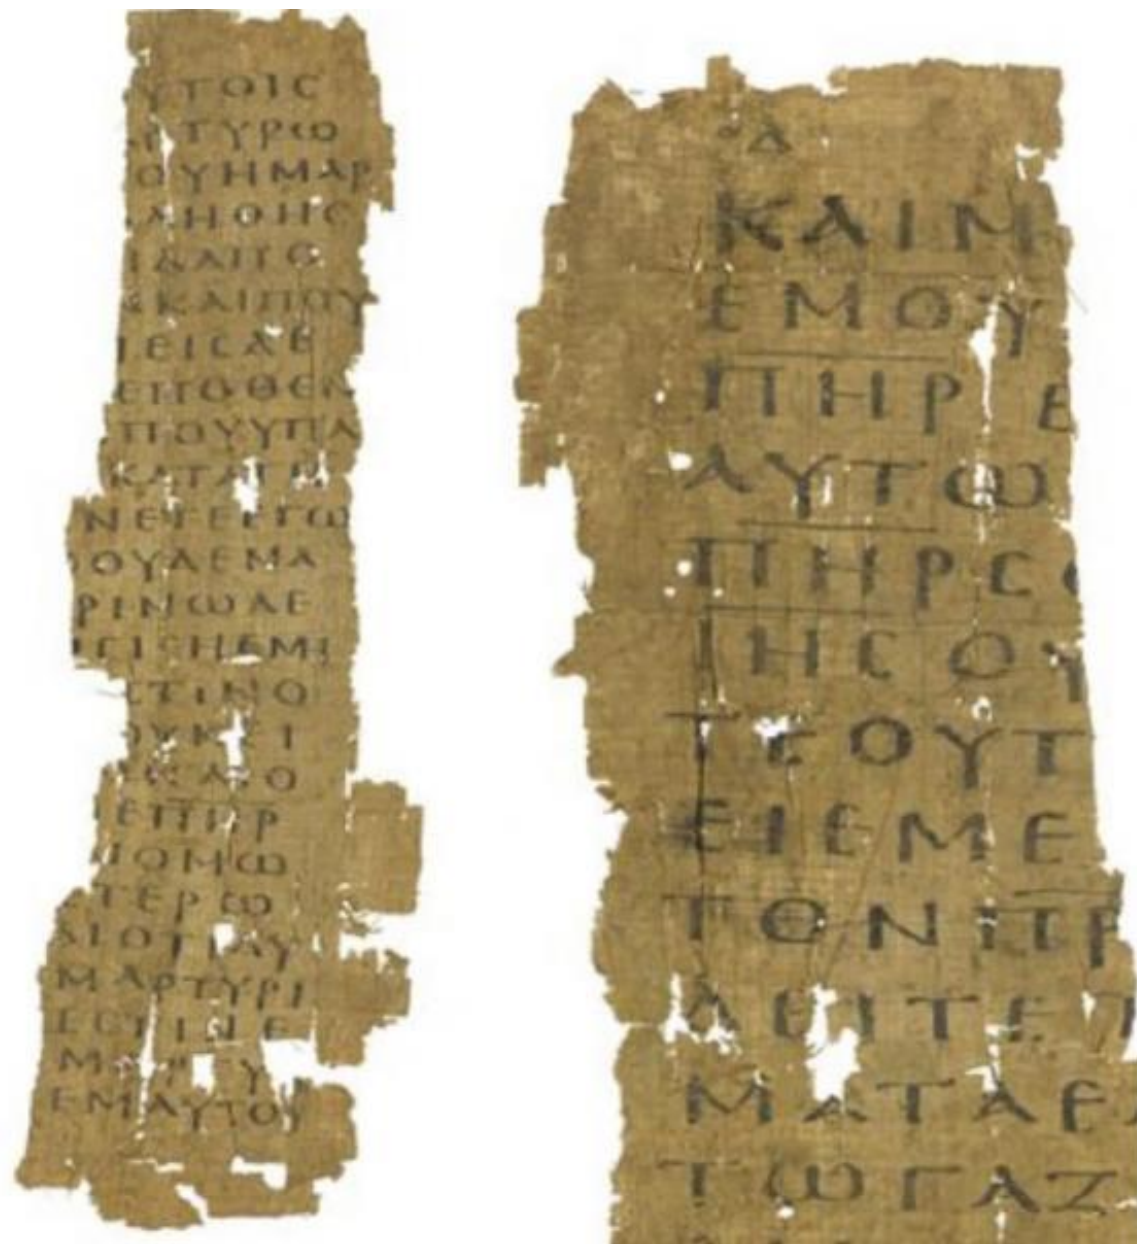 ΥΤΟΙϹ
ΡΤΥΡΩ
ΟΥΗΜΑΡ
ΛΗΘΗϹ
ΙΔΑΠΟ
ΚΑΙΠΟΥ
ΕΙϹΔΕ
ΕΠΟΘΕΝ
ΠΟΥΥΠΑ
ΚΑΤΑΤΗ
ΝΕΤΕΕΓΩ
ΟΥΔΕΝΑ
ΡΙΝΩΔΕ
ΙϹΙϹΗΕΜΗ
ϹΤΙΝΟ
ΟΥΚΕΙ
ΚΑΙΟ
ΕΠΗΡ
ΝΟΜΩ
ΤΕΡΩ
ΑΙΟΤΙΔΥ
ΜΑΡΤΥΡΙ
ΕϹΤΙΝΕ
ΜΑΡΤΥ
ΕΜΑΥΤΟΥ
ΟΔ
ΚΑΙΜ
ΕΜΟΥ
Π̅Η̅Ρ̅ Ε
ΑΥΤΩ
Π̅Η̅Ρ̅ϹΟ
Ι̅Η̅Ϲ̅ΟΥ
ΤΕΟΥΤ
ΕΙΕΜΕ
ΤΟΝΠ̅Ρ̅
ΔΕΙΤΕΤ
ΜΑΤΑΕ
ΤΩΓΑΖ